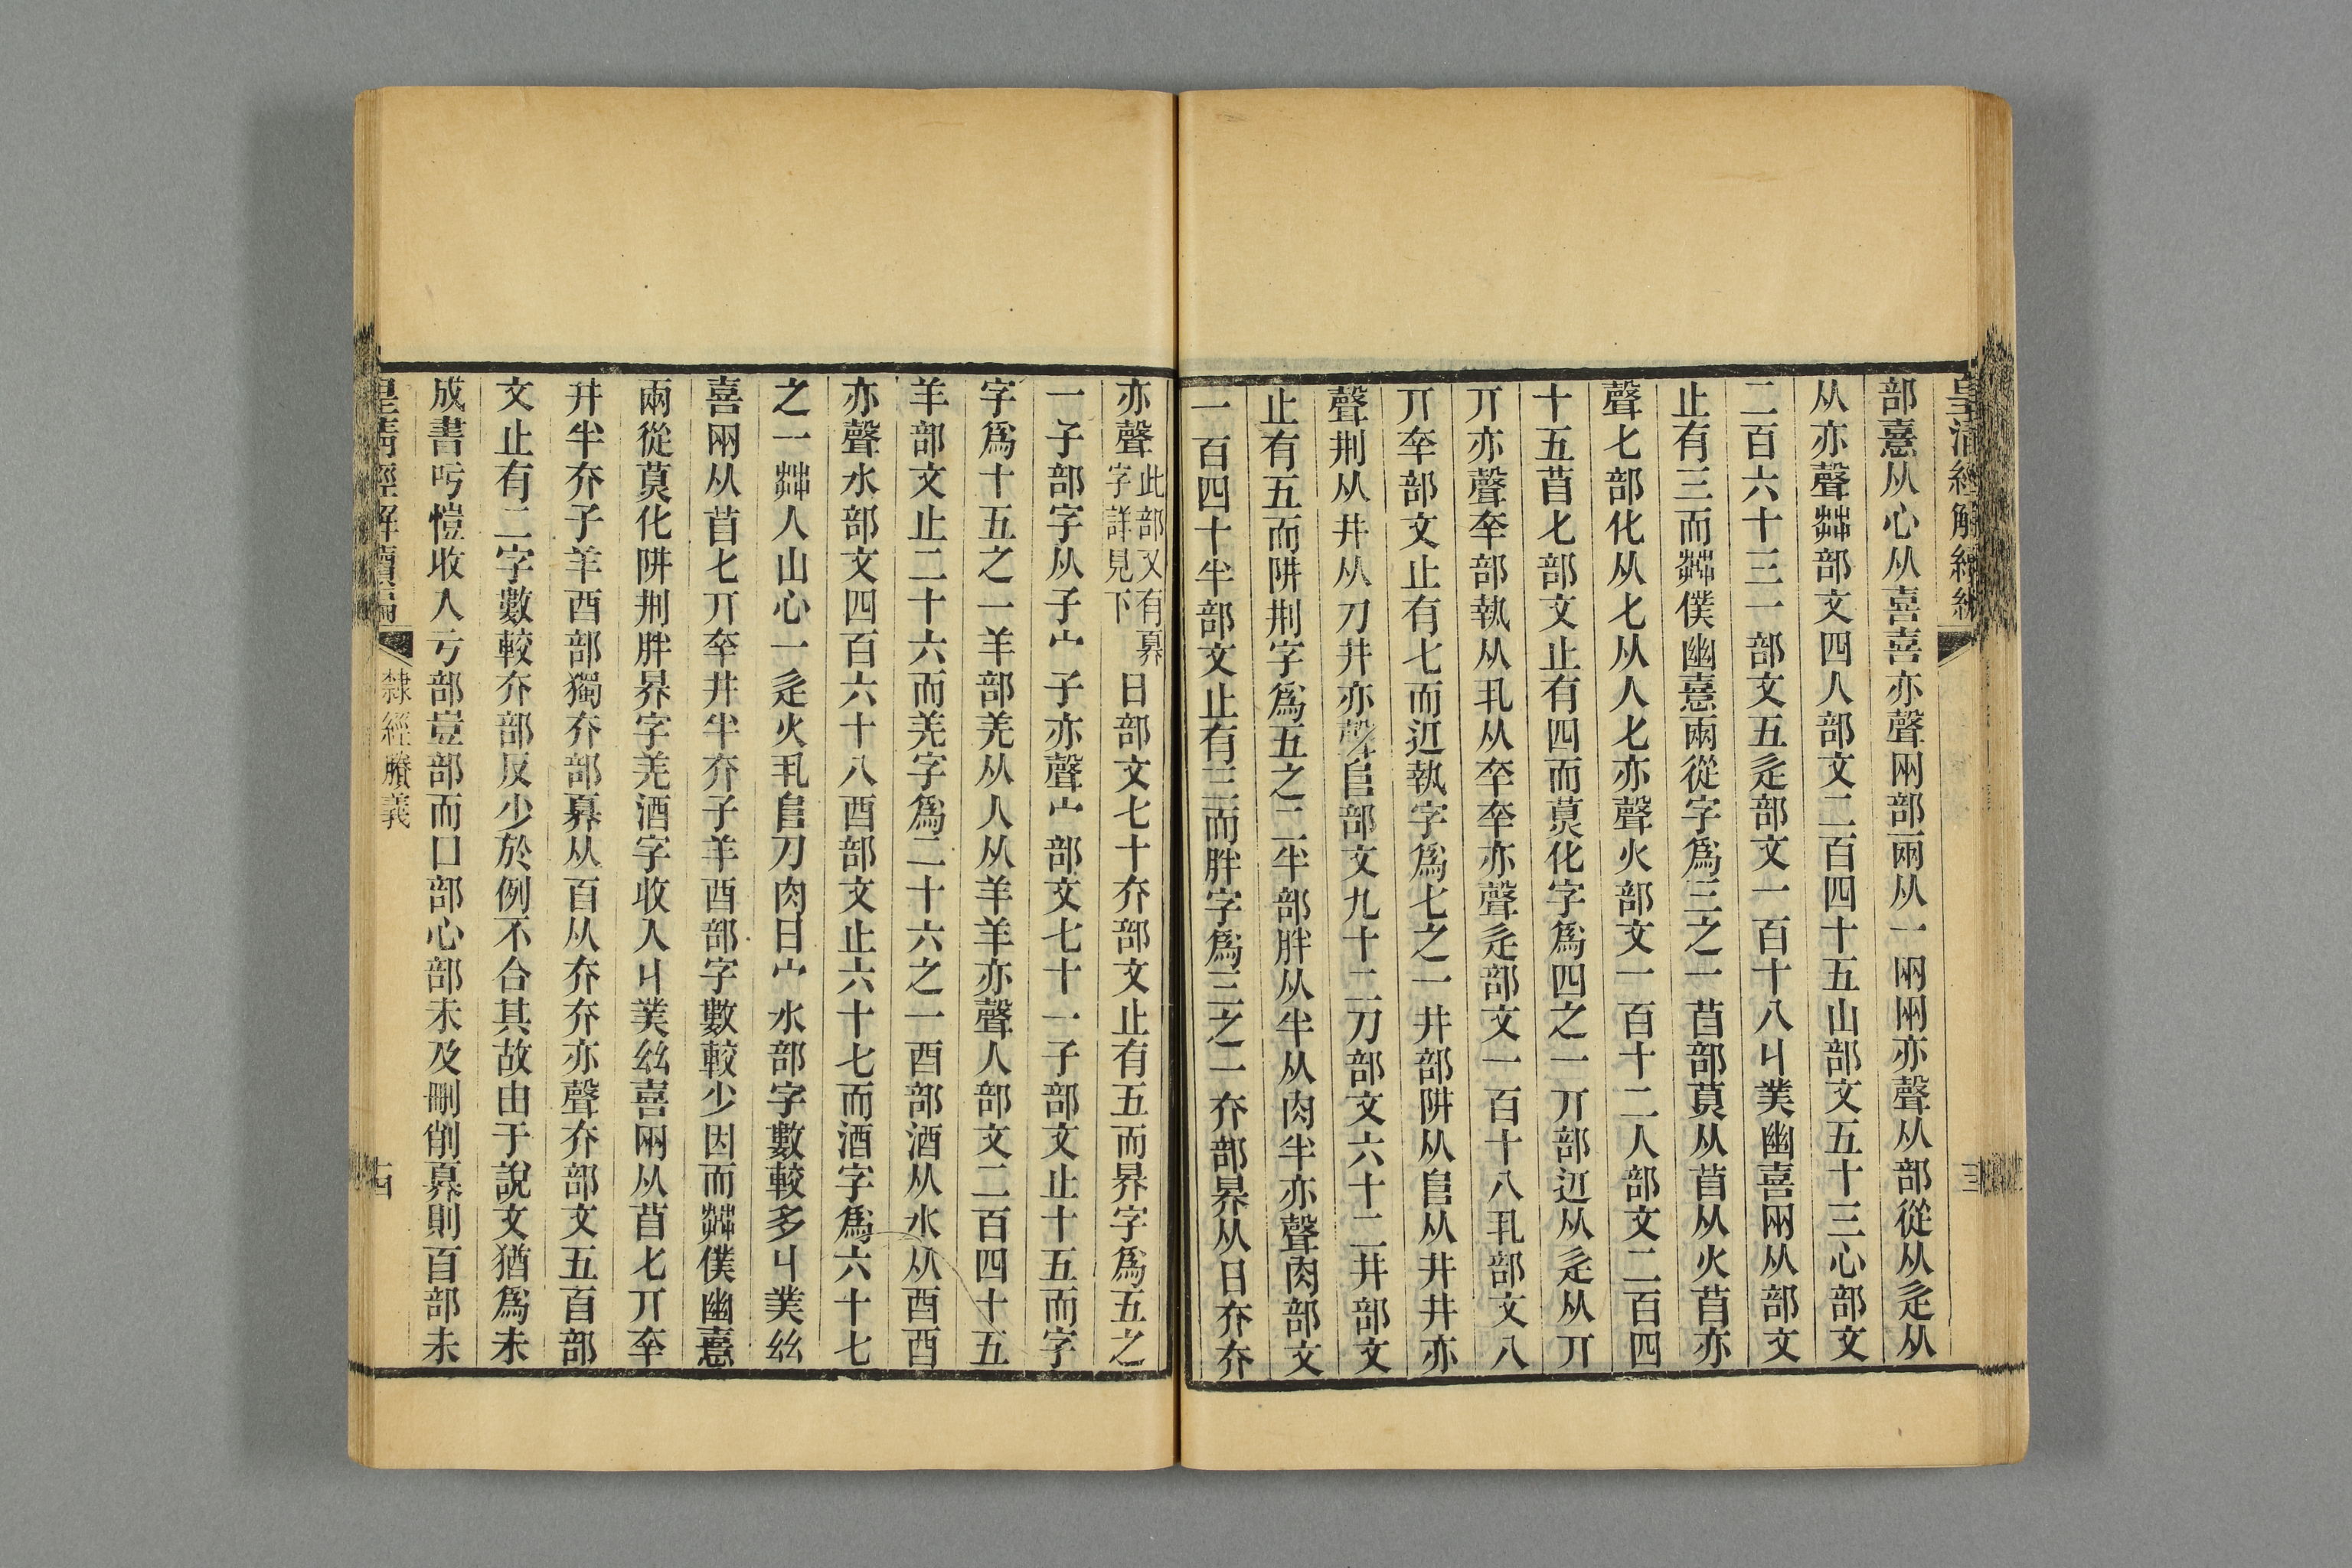 皇清經解續編
部憙从心从喜喜亦聲㒳部兩从一㒳㒳亦聲从部從从辵从
从亦聲茻部文四人部文二百四十五山部文五十三心部文
二百六十三一部文五辵部文一百十八丩菐幽喜㒳从部文
止有三而茻僕幽憙兩從字爲三之一苜部莫从苜从火苜亦
聲𠤎部化从𠤎从人𠤎亦聲火部文一百十二人部文二百四
十五苜𠤎部文止有四而莫化字爲四之一丌部䢋从辵从丌
丌亦聲㚔部執从丮从㚔㚔亦聲辵部文一百十八丮部文八
丌㚔部文止有七而䢋執字爲七之一井部阱从𨸏从井井亦
聲荆从井从刀井亦聲𨸏部文九十二刀部文六十二井部文
止有五而阱荆字爲五之二半部胖从半从肉半亦聲肉部文
一百四十半部文止有三而胖字爲三之一夰部昦从日夰夰
亦聲此部又有𡘲字詳見下日部文七十夰部文止有五而昦字爲五之
一子部字从子宀子亦聲宀部文七十一子部文止十五而字
字爲十五之一羊部羌从人从羊羊亦聲人部文二百四十五
羊部文止二十六而羌字爲二十六之一酉部酒从水从酉酉
亦聲水部文四百六十八酉部文止六十七而酒字爲六十七
之一茻人山心一辵火丮𨸏刀肉日宀水部字數較多丩菐𢆶
喜㒳从苜𠤎丌㚔井半夰子羊酉部字數較少因而茻僕幽憙
兩從莫化阱荆胖昦字羌酒字收入丩菐𢆶喜㒳从苜𠤎丌㚔
井半夰子羊酉部獨夰部𡘲从𦣻从夰夰亦聲夰部文五𦣻部
文止有二字數較夰部反少於例不合其故由于說文猶爲未
成書虧愷收入亏部豈部而口部心部未及刪削𡘲則𦣻部未
皇清經解續編
隸經賸義
十四